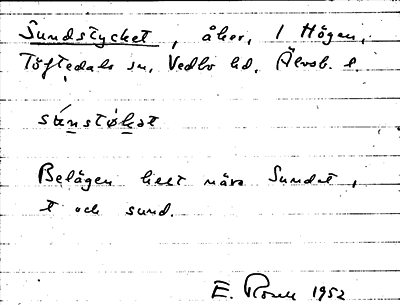 Sundstycket, åker, 1 Högen,
Töftedals sn, Vedbo hd, Älvsb. l.
súnstøkət
Belägen helt nära Sundet,
t och sund.
E. 1952